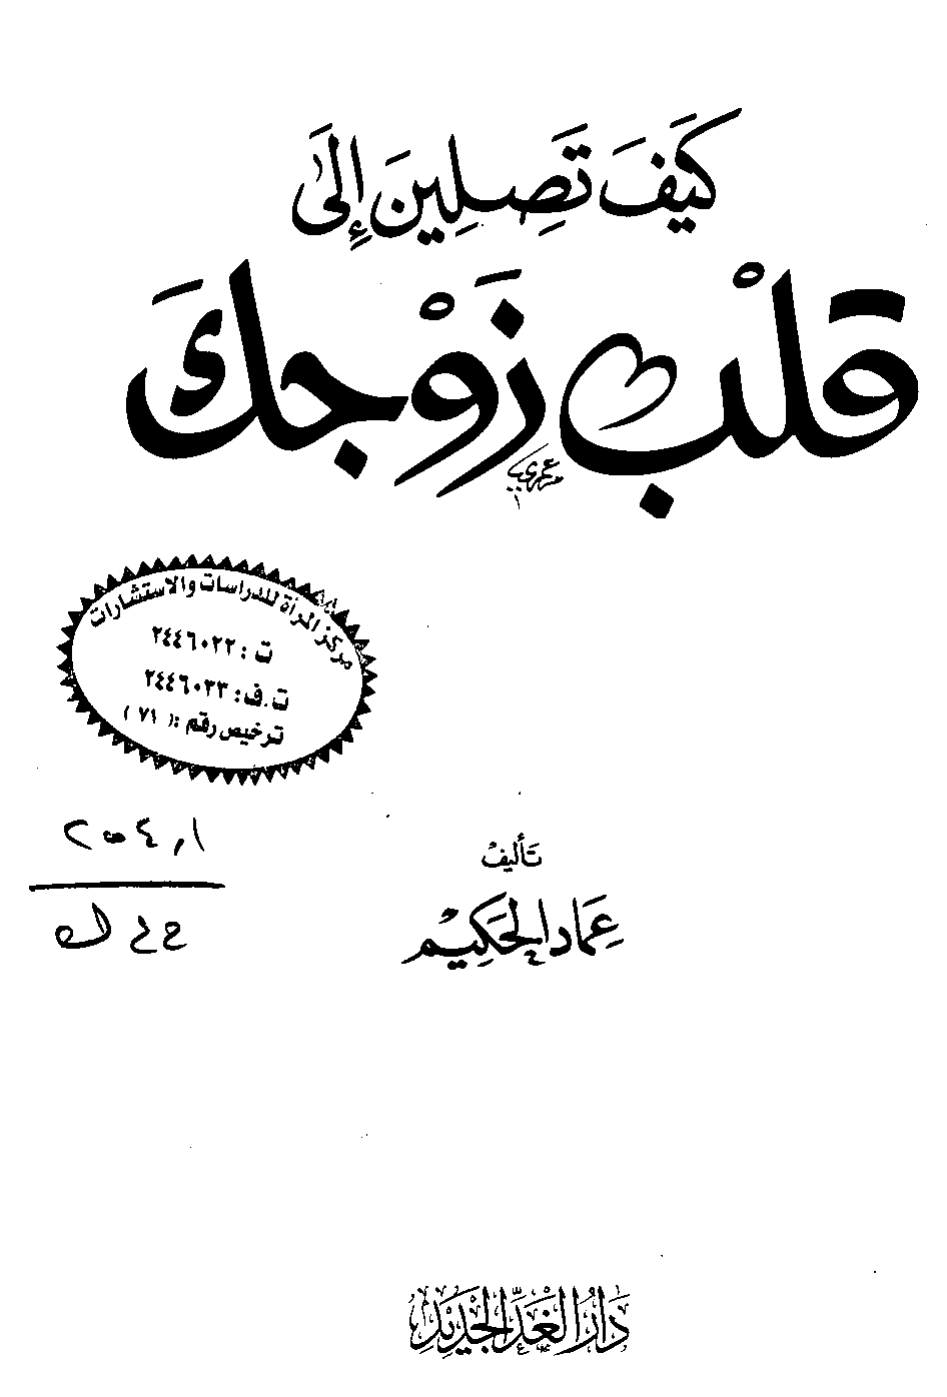 كَيْفَ تَصِلِينَ إِلَى
قَلْبِ زَوْجِكَ
مركز المرأة للدراسات والاستشارات
ت : ٢٤٤٦٠٢٢
ت.ف: ٢٤٤٦٠٣٣
ترخيص رقم :( ٧١ )
تَأليفْ
عِمَاد الحَكِيْم
دَارُ الغَدِّ الجَدِيْدِ